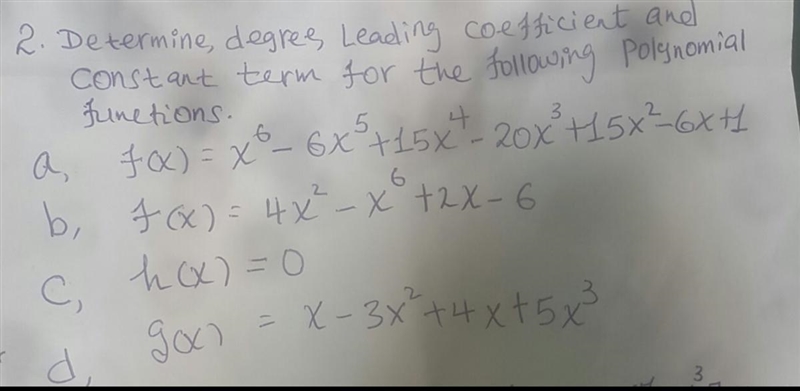 2. Determine, degree, Leading coefficient and
constant term for the following Polynomial
functions.
a, f(x) = x⁶ - 6x⁵ + 15x⁴ - 20x³ + 15x² - 6x + 1
b, f(x) = 4x² - x⁶ + 2x - 6
c, h(x) = 0
d, g(x) = x - 3x² + 4x + 5x³
3